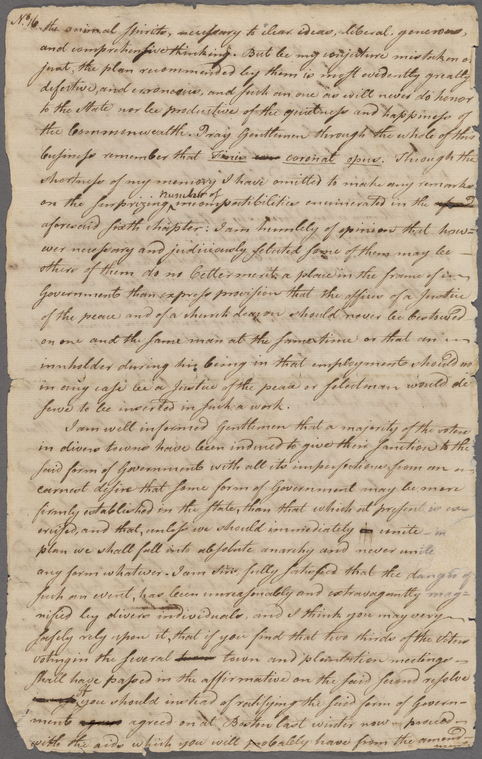 No. 16
the animal spirits, necessary to clear ideas, liberal, generous,
and comprehensive thinking. But be my conjecture mistaken or
just, the plan recommended by them is most evidently greatly
defective, and erroneous, and such an one as will never do honor
to the State nor be productive of the quietness and happiness of
the Commonwealth. Pray Gentlemen through the whole of this
business remember that Finis coronat opus. Through the
shortness of my memory I have omitted to make any remarks
on the surprizing number of incompatibilities enumerated in the
aforesaid sixth chapter: I am humbly of opinion that how=
ever necessary and judiciously selected some of them may be
others of them do no better merit a place in the frame of
Government than express provision that the offices of a Justice
of the peace and of a church deacon should never be bestowed
on one and the same man at the same time or that an
innholder during his being in that employment should not
in any case be a Justice of the peace or selectman would de
serve to be inserted in such a work.
I am well informed Gentlemen that a majority of the voters
in divers towns have been induced to give their sanction to the
said form of Government with all its imperfections from an
earnest desire that some form of Government may be more
firmly established in the State, than that which at present is ex=
ercised, and that, unless we should immediately unite in
plan we shall fall into absolute anarchy and never unite
any form whatever. I am fully satisfied that the danger of
such an event, has been unreasonably and extravagantly mag=
nified by divers individuals, and I think you may very
safely rely upon it, that if you find that two thirds of the voters
voting in the several town and plantation meetings
shall have passed in the affirmative on the said second resolve
you should instead of ratifying the said form of Govern=
ment agreed on at Boston last winter now proceed
with the aids which you will probably have from the amend=